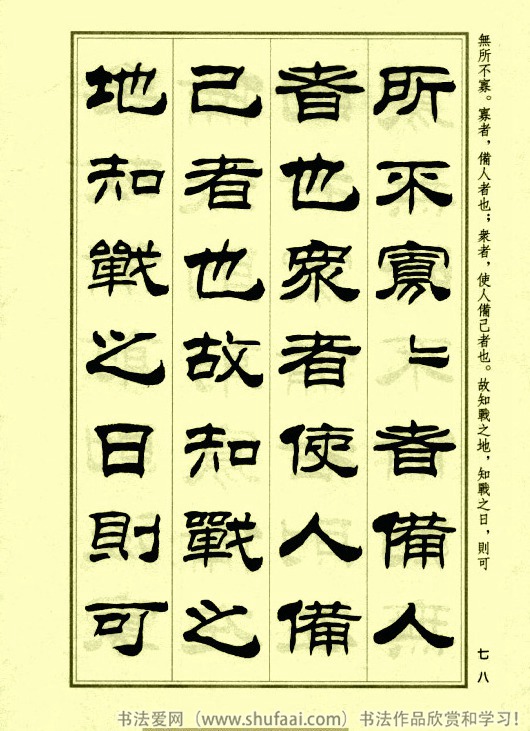 無所不寡。寡者，備人者也；衆者，使人備己者也。故知戰之地，知戰之日，則可
所不寡〻者備人
者也衆者使人備
己者也故知戰之
地知戰之日則可
七八
书法爱网（www.shufaai.com）书法作品欣赏和学习！